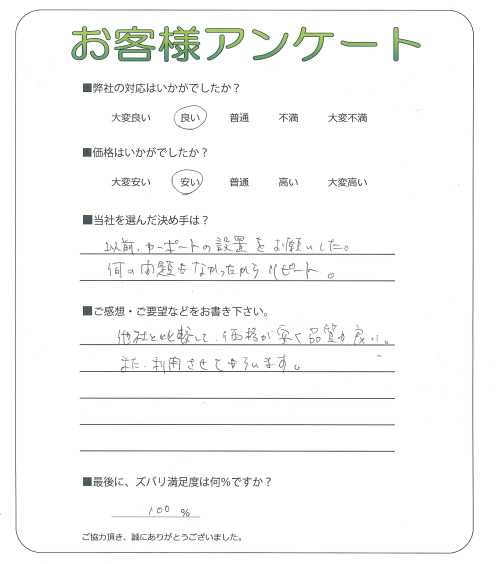 お客様アンケート
■弊社の対応はいかがでしたか？
大変良い 良い 普通 不満 大変不満
■価格はいかがでしたか？
大変安い 安い 普通 高い 大変高い
■当社を選んだ決め手は？
以前、カーポートの設置をお願いした。
何の問題もなかったからリピート。
■ご感想・ご要望などをお書き下さい。
他社と比較して、価格が安く品質が良い。
また、利用させてもらいます。
■最後に、ズバリ満足度は何％ですか？
100 %
ご協力頂き、誠にありがとうございました。